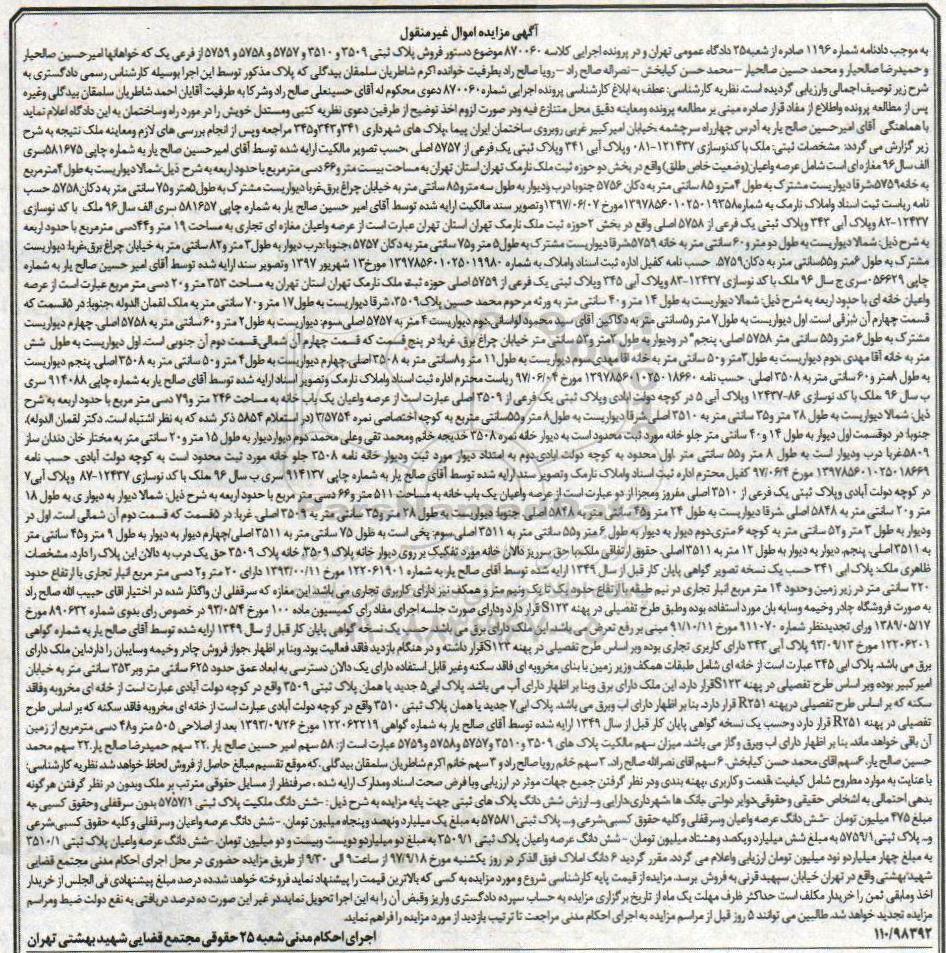 آگهی مزایده اموال غیر منقول
به موجب دادنامه شماره ۱۱۹۶ صادره از شعبه ۲۵ دادگاه عمومی تهران و در پرونده اجرایی کلاسه ۸۷۰۰۶۰ موضوع دستور فروش پلاک ثبتی ۳۵۰۹ و ۳۵۱۰ و ۵۷۵۷ و ۵۷۵۸ و ۵۷۵۹ از فرعی یک که خواهانها امیرحسین صالحیار
و حمیدرضا صالحیار و محمد حسین صالحیار – محمد حسن کیابخش – نصراله صالح راد – رویا صالح راد بطرفیت خوانده اکرم شاطریان سلمقان بیدگلی که پلاک مذکور توسط این اجرا بوسیله کارشناس رسمی دادگستری به
شرح زیر توصیف اجمالی وارزیابی گردیده است. نظریه کارشناسی: عطف به ابلاغ کارشناسی پرونده اجرایی شماره ۸۷۰۰۶۰ دعوی محکوم له آقای حسینعلی صالح راد وشرکا به طرفیت آقایان احمد شاطریان سلمقان بیدگلی وغیره
پس از مطالعه پرونده واطلاع از مفاد قرار صادره مبتنی بر مطالعه پرونده ومعاینه دقیق محل متنازع فیه ودر صورت لزوم اخذ توضیح از طرفین دعوی نظریه کتبی ومستدل خویش را در مورد راه وساختمان به این دادگاه اعلام نماید
با هماهنگی آقای امیرحسین صالح یار به آدرس چهارراه سرچشمه ،خیابان امیرکبیر غربی روبروی ساختمان ایران پیما ،پلاک های شهرداری ۳۴۱و۳۴۳و۳۴۵ مراجعه وپس از انجام بررسی های لازم ومعاینه ملک نتیجه به شرح
زیر گزارش می گردد: مشخصات ثبتی: ملک با کدنوسازی ۱۲۱۴۳۷-۰۸۱ وپلاک آبی ۳۴۱ وپلاک ثبتی یک فرعی از ۵۷۵۷ اصلی ،حسب تصویر مالکیت ارایه شده توسط آقای امیرحسین صالح یار به شماره چاپی ۵۸۱۶۷۵سری
الف سال۹۶ مغازه ای است شامل عرصه واعیان(وضعیت خاص طلق) واقع در بخش دو حوزه ثبت ملک نارمک تهران استان تهران به مساحت بیست متر و۶۶ دسی مترمربع با حدود اربعه به شرح ذیل:شمالا دیواریست به طول ۴مترمربع
به خانه۵۷۵۹شرقا دیواریست مشترک به طول ۴متر و ۸۵ سانتی متر به دکان ۵۷۵۶ جنوبا درب ودیوار به طول سه مترو۸۵ سانتی متر به خیابان چراغ برق؛غربا دیواریست مشترک به طول۵متر و۷۵ سانتی متر به دکان۵۷۵۸. حسب
نامه ریاست ثبت اسناد واملاک نارمک به شماره۱۳۹۷۸۵۶۰۱۰۲۵۰۱۹۳۵۸مورخ ۱۳۹۷/۰۶/۰۷وتصویر سند مالکیت ارایه شده توسط آقای امیر حسین صالح یار به شماره چاپی ۵۸۱۶۵۷ سری الف سال۹۶ ملک با کد نوسازی
۱۲۴۳۷-۸۲ وپلاک آبی ۳۴۳ وپلاک ثبتی یک فرعی از ۵۷۵۸ اصلی واقع در بخش ۲حوزه ثبت ملک نارمک تهران استان تهران عبارت است از عرصه واعیان مغازه ای تجاری به مساحت ۱۹ متر و۴۴دسی مترمربع با حدود اربعه
به شرح ذیل: شمالا دیواریست به طول دو متر و۶۰ سانتی متر به خانه ۵۷۵۹شرقا دیواریست مشترک به طول۵ متر و۷۵ سانتی متر به دکان ۵۷۵۷ ،جنوبا: درب دیوار به طول ۳ متر و۸۲ سانتی متر به خیابان چراغ برق،غربا دیواریست
مشترک به طول ۶متر و۵۵سانتی متر به دکان۵۷۵۹. حسب نامه کفیل اداره ثبت اسناد واملاک به شماره ۱۳۹۷۸۵۶۰۱۰۲۵۰۱۹۹۸۰ مورخ۱۳ شهریور ۱۳۹۷ وتصویر سند ارایه شده توسط آقای امیر حسین صالح یار به شماره
چاپی ۰۵۶۶۲۹سری ج سال ۹۶ ملک با کد نوسازی ۱۲۴۳۷-۸۳ وپلاک آبی ۳۴۵ وپلاک ثبتی یک فرعی از ۵۷۵۹ اصلی حوزه ثبت ملک نارمک تهران استان تهران به مساحت ۳۵۳ متر و ۲۰ دسی متر مربع عبارت است از عرصه
واعیان خانه ای با حدود اربعه به شرح ذیل: شمالا دیواریست به طول ۱۴ متر و ۴۰ سانتی متر به ورثه مرحوم محمد حسین پلاک۳۵۰۹، شرقا دیواریست به طول۱۷ متر و۷۰ سانتی متر به ملک لقمان الدوله ،جنوبا: در ۵قسمت که
قسمت چهارم آن شرقی است. اول دیواریست به طول۷ متر و۵سانتی متر به دکاکین آقای سید محمود لواسانی،دوم دیواریست ۴ متر به ۵۷۵۷ اصلی،سوم: دیواریست به طول۲ متر و۶۰ سانتی متر به ۵۷۵۸ اصلی، چهارم دیواریست
مشترک به طول۶ متر و۵۵ سانتی متر ۵۷۵۸ اصلی، پنجم" در ودیوار به طول ۲متر و۵۲ سانتی متر خیابان چراغ برق، غربا: در پنج قسمت که قسمت چهارم آن شمالی،قسمت دوم آن جنوبی است. اول دیواریست به طول شش
متر به خانه آقا مهدی ،دوم دیواریست به طول۳متر و۵۰ سانتی متر به خانه آقا مهدی،سوم دیواریست به طول۱۱ متر و۸سانتی متر به ۳۵۰۸ اصلی،چهارم دیواریست به طول۴ متر و۵۰ سانتی متر به ۳۵۰۸ اصلی، پنجم دیواریست
به طول ۸متر و۶۰ سانتی متر به ۳۵۰۸ اصلی. حسب نامه ۱۳۹۷۸۵۶۰۱۰۲۵۰۱۸۶۶۰ مورخ ۹۷/۰۶/۰۴ ریاست محترم اداره ثبت اسناد واملاک نارمک وتصویر اسناد ارایه شده توسط آقای صالح یار به شماره چاپی ۹۱۴۰۸۸ سری
ب سال ۹۶ ،ملک با کد نوسازی ۸۶-۱۲۴۳۷ وپلاک آبی ۵ در کوچه دولت ابادی وپلاک ثبتی یک فرعی از ۳۵۰۹ اصلی عبارت است از عرصه واعیان یک باب خانه به مساحت ۲۴۶ متر و۷۹ دسی متر مربع با حدود اربعه به شرح
ذیل: شمالا دیواریست به طول ۲۸ متر و۳۵ سانتی متر به ۳۵۱۰ اصلی،شرقا دیواریست به طول۸ متر و۵۵سانتی متربع به کوچه اختصاصی نمره ۳/۵۷۵۴ (در استعلام ۵۸۵۴ ذکر شده که به نظر اشتباه است. دکتر لقمان الدوله)،
جنوبا: در دوقسمت اول دیوار به طول ۱۴ و۴۰ سانتی متر جلو خانه مورد ثبت محدود است به دیوار خانه نمره ۳۵۰۸ خدیجه خانم ومحمد تقی وعلی محمد دوم دیواردیوار به طول ۱۵ متر و۲۰ سانتی متر به مختار خان دندان ساز
۵۸۰۹،غربا درب ودیوار است به طول ۸ متر و۵۵ سانتی متر اول محدود به کوچه دولت ابادی،دوم به امتداد دیوار مورد ثبت ودیوار خانه نامه ۳۵۰۸ جلو خانه مورد ثبت محدود است به کوچه دولت آبادی. حسب نامه
۱۳۹۷۸۵۶۰۱۰۲۵۰۱۸۶۶۹ مورخ ۹۷/۰۶/۴ کفیل محترم اداره ثبت اسناد واملاک نارمک وتصویر سند ارایه شده توسط آقای صالح یار به شماره چاپی ۹۱۴۱۳۷ سری ب سال ۹۶ ،ملک با کد نوسازی ۱۲۴۳۷-۸۷ وپلاک آبی۷
در کوچه دولت آبادی وپلاک ثبتی یک فرعی از ۳۵۱۰ اصلی مفروز ومجزا از دو عبارت است از عرصه واعیان یک باب خانه به مساحت ۵۱۱ متر و۶۶ دسی متر مربع با حدود اربعه به شرح ذیل: شمالا دیوار به دیوار ی به طول ۱۸
متر و۲۰ سانتی متر به ۵۸۴۸ اصلی ،شرقا دیواریست به طول ۲۴ متر و۴۵ سانتی متر به ۵۸۴۸ اصلی، جنوبا دیواریست به طول ۲۸ متر و۳۵ سانتی متر به ۳۵۰۹ اصلی، غربا: در ۵قسمت که قسمت دوم آن شمالی است. اول در
ودیوار به طول ۳ متر و۵۲ سانتی متر به کوچه ۶ متری،دوم دیوار به دیوار به طول ۶ متر و۵۵ سانتی متر به ۳۵۱۱ اصلی،سوم: پخی است به طول ۷۵ سانتی متر به ۳۵۱۱ اصلی؛چهارم دیوار به دیوار به طول ۹ متر و۴۵ سانتی متر
به ۳۵۱۱ اصلی، پنجم، دیوار به دیوار به طول ۱۲ متر به ۳۵۱۱ اصلی. حقوق ارتفاقی ملک،با حق سرریز دالان خانه مورد تفکیک بر روی دیوار خانه پلاک ۳۵۰۹، خانه پلاک ۳۵۰۹ حق یک درب به دالان این پلاک را دارد. مشخصات
ظاهری ملک: پلاک ابی ۳۴۱ حسب یک نسخه تصویر گواهی پایان کار قبل از سال ۱۳۴۹ ارایه شده توسط آقای صالح یار به شماره ۱۲۲۰۶۱۹۰۱ مورخ ۱۳۹۳/۰۰/۱۱ دارای ۲۰ متر و۲ دسی متر مربع انبار تجاری با ارتفاع حدود
۲۲۰ سانتی متر در زیر زمین وحدود ۱۴ متر مربع انبار تجاری در نیم طبقه با ارتفاع حدود یک تا یک ونیم متر و همکف نیز دارای کاربری تجاری می باشد. این مغازه که سرقفلی آن واگذار شده در اختیار اقای حبیب الله صالح راد
به صورت فروشگاه چادر وخیمه وسایه بان مورد استفاده بوده وطبق طرح تفصیلی در پهنه S۱۲۳ قرار دارد ودارای صورت جلسه اجرای مفاد رای کمیسیون ماده ۱۰۰ مورخ ۹۳/۰۵/۴ در خصوص رای بدوی شماره ۸۹۰۶۳۲ مورخ
۱۳۸۹/۰۵/۱۷ ورای تجدیدنظر شماره ۹۱۱۰۷۰ مورخ ۹۱/۱۰/۱۱ مبنی بر رفع تعرض می باشد. این ملک دارای برق می باشد. حسب یک نسخه گواهی پایان کار قبل از سال ۱۳۴۹ ارایه شده توسط آقای صالح یار به شماره گواهی
۱۲۲۰۶۲۰۱ مورخ ۹۳/۰۹/۱۳ پلاک آبی ۳۴۳ دارای کاربری تجاری بوده وبر اساس طرح تفصیلی در پهنه S۱۲۳قرار داشته و در هنگام بازدید فاقد فعالیت بود. وبنا بر اظهار ،جواز فروش چادر وخیمه وسایبان را دارد.این ملک دارای
برق می باشد. پلاک ابی ۳۴۵ عبارت است از خانه ای شامل طبقات همکف وزیر زمین با بنای مخروبه ای فاقد سکنه وغیر قابل استفاده دارای یک دالان دسترسی به ابعاد عمق حدود ۶۲۵ سانتی متر وبر ۳۵۳ سانتی متر به خیابان
امیر کبیر بوده وبر اساس طرح تفصیلی در پهنه S۱۲۳قرار دارد. این ملک دارای برق وبنا بر اظهار دارای آب می باشد. پلاک ابی۵ جدید یا همان پلاک ثبتی ۳۵۰۹ واقع در کوچه دولت آبادی عبارت است از خانه ای مخروبه وفاقد
سکنه که بر اساس طرح تفصیلی درپهنه R۲۵۱ قرار دارد. بنا بر اظهار دارای اب وبرق می باشد. پلاک ابی۷ جدید یا همان پلاک ثبتی ۳۵۱۰ واقع در کوچه دولت آبادی عبارت است از خانه ای مخروبه فاقد سکنه که بر اساس طرح
تفصیلی در پهنه R۲۵۱ قرار دارد وحسب یک نسخه گواهی پایان کار قبل از سال ۱۳۴۹ ارایه شده توسط آقای صالح یار به شماره گواهی ۱۲۲۰۶۲۲۱۹ مورخ ۱۳۹۳/۰۹/۲۶ بعد از اصلاحی ۵۰۵ متر و۴۸ دسی مترمربع از زمین
آن باقی خواهد ماند. بنا بر اظهار دارای اب وبرق وگاز می باشد. میزان سهم مالکیت پلاک های ۳۵۰۹ و۳۵۱۰ و۵۷۵۷ و۵۷۵۸ و۵۷۵۹ عبارت است از: ۵۸ سهم امیر حسین صالح یار ۲۲، سهم حمیدرضا صالح یار،۲۲ سهم محمد
حسین صالح یار، ۶سهم اقای محمد حسن کیابخش، ۶ سهم اقای نصرالله صالح راد، ۳ سهم خانم رویا صالح راد و ۳ سهم خانم اکرم شاطریان سلمقان بیدگلی ،که موقع تقسیم مبالغ حاصل از فروش لحاظ خواهد شد. نظریه کارشناسی:
با عنایت به موارد مطروح شامل کیفیت ،قدمت وکاربری ،پهنه بندی ودر نظر گرفتن جمیع جهات موثر در ارزیابی وبا فرض صحت اسناد ومدارک ارایه شده ، صرفنظر از مسایل حقوقی مترتب بر ملک وبدون در نظر گرفتن هر گونه
بدهی احتمالی به اشخاص حقیقی وحقوقی،دوایر دولتی ،بانک ها ،شهرداری،دارایی و...ارزش شش دانگ پلاک های ثبتی جهت پایه مزایده به شرح ذیل: -شش دانگ ملکیت پلاک ثبتی ۵۷۵۷/۱ بدون سرقفلی وحقوق کسبی ،به
مبلغ ۴۷۵ میلیون تومان -شش دانگ عرصه واعیان وسرقفلی وکلیه حقوق کسبی،شرعی و... پلاک ثبتی ۵۷۵۸/۱ به مبلغ یک میلیارد ونهصد وپنجاه میلیون تومان. -شش دانگ عرصه واعیان وسرقفلی وکلیه حقوق کسبی،شرعی
و... پلاک ثبتی ۵۷۵۹/۱ به مبلغ شش میلیارد ویکصد وهشتاد میلیون تومان. -شش دانگ عرصه واعیان پلاک ثبتی ۳۵۰۹/۱ به مبلغ دو میلیاردو دویست وبیست و دو میلیون تومان. -شش دانگ عرصه واعیان پلاک ثبتی ۳۵۱۰/۱
به مبلغ چهار میلیاردو نود میلیون تومان ارزیابی واعلام می گردد. مقرر گردید ۶ دانگ املاک فوق الذکر در روز یکشنبه مورخ ۹۷/۹/۱۸ از ساعت۹ الی ۹/۳۰ از طریق مزایده حضوری در محل اجرای احکام مدنی مجتمع قضایی
شهیدبهشتی واقع در تهران خیابان سپهبد قرنی به فروش برسد. مزایده از قیمت پایه کارشناسی شروع و مورد مزایده به کسی که بالاترین قیمت را پیشنهاد نماید فروخته خواهد شد،ده درصد مبلغ پیشنهادی فی المجلس از خریدار
اخذ ومابقی ثمن را خریدار مکلف است حداکثر ظرف مهلت یک ماه از تاریخ برگزاری مزایده به حساب سپرده دادگستری واریز وقبض آن را به این اجرا تحویل نماید،در غیر این صورت ده درصد دریافتی به نفع دولت ضبط ومراسم
مزایده تجدید خواهد شد. طالبین می توانند ۵ روز قبل از مراسم مزایده به اجرای احکام مدنی مراجعت تا ترتیب بازدید از مورد مزایده را فراهم نماید.
۱۱۰/۹۸۳۹۲ اجرای احکام مدنی شعبه ۲۵ حقوقی مجتمع قضایی شهید بهشتی تهران